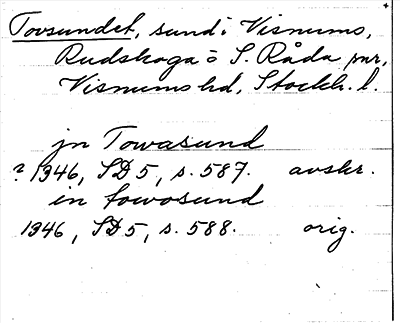 Tovsundet, sund i Visnums,
Rudskoga o S. Råda snr,
Visnums hd, Stockh. l.
jn Towasund
? 1346, SD 5, s. 587. avskr.
in towosund
1346, SD 5, s. 588. orig.